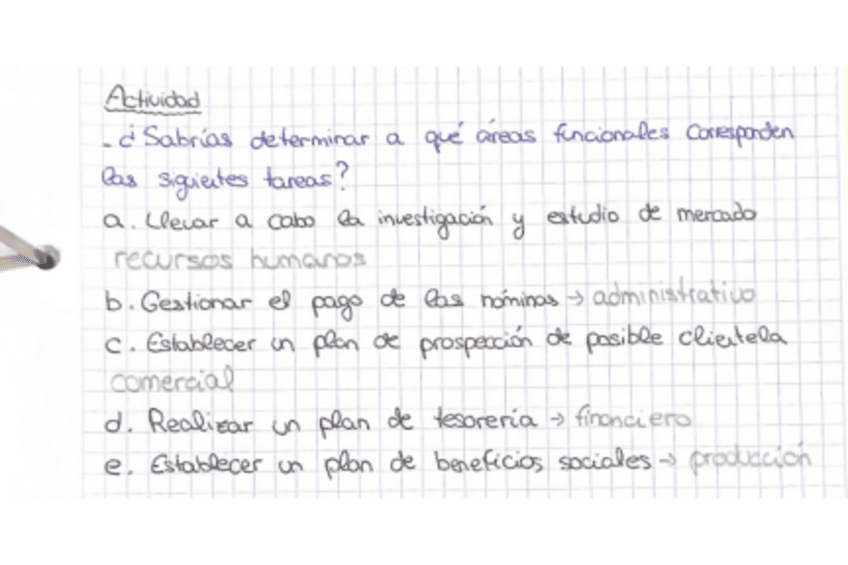 Actividad
- ¿Sabrías determinar a qué áreas funcionales corresponden
las siguientes tareas?
a. Llevar a cabo la investigación y estudio de mercado
recursos humanos
b. Gestionar el pago de las nóminas → administrativo
c. Establecer un plan de prospección de posible clientela
comercial
d. Realizar un plan de tesorería → financiero
e. Establecer un plan de beneficios sociales → producción